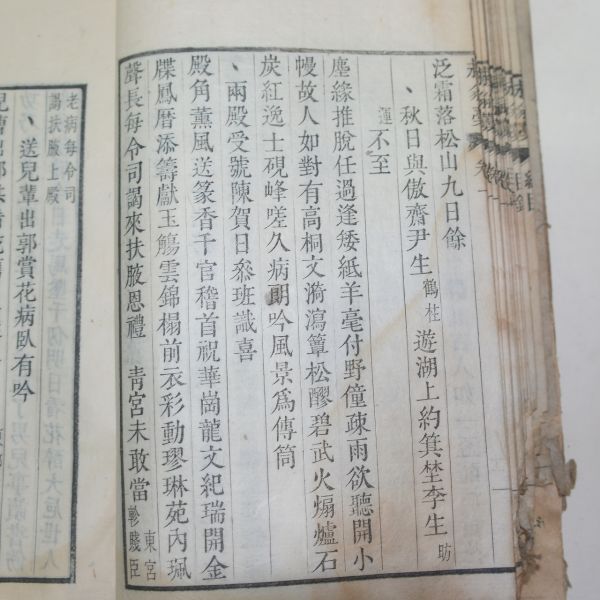 泛霜落松山九日餘
、秋日與傲齋尹生鶴桂遊湖上約箕埜李生昉
運不至
塵緣推脫任過逢矮紙羊毫付野僮疎雨欲聽開小
幔故人如對有高桐文漪瀉簟松醪碧武火煽爐石
炭紅逸士硯峰嗟久病朗吟風景爲傳筒
、兩殿受號陳賀日叅班識喜
殿角薰風送篆香千官稽首祝華崗龍文紀瑞開金
牒鳳曆添籌獻玉觴雲錦榻前衣彩動璆琳苑內珮
聲長每令司謁來扶腋恩禮靑宮未敢當東宮軫賤臣
老病每令司
謁扶腋上殿
、送兒輩出郭賞花病臥有吟